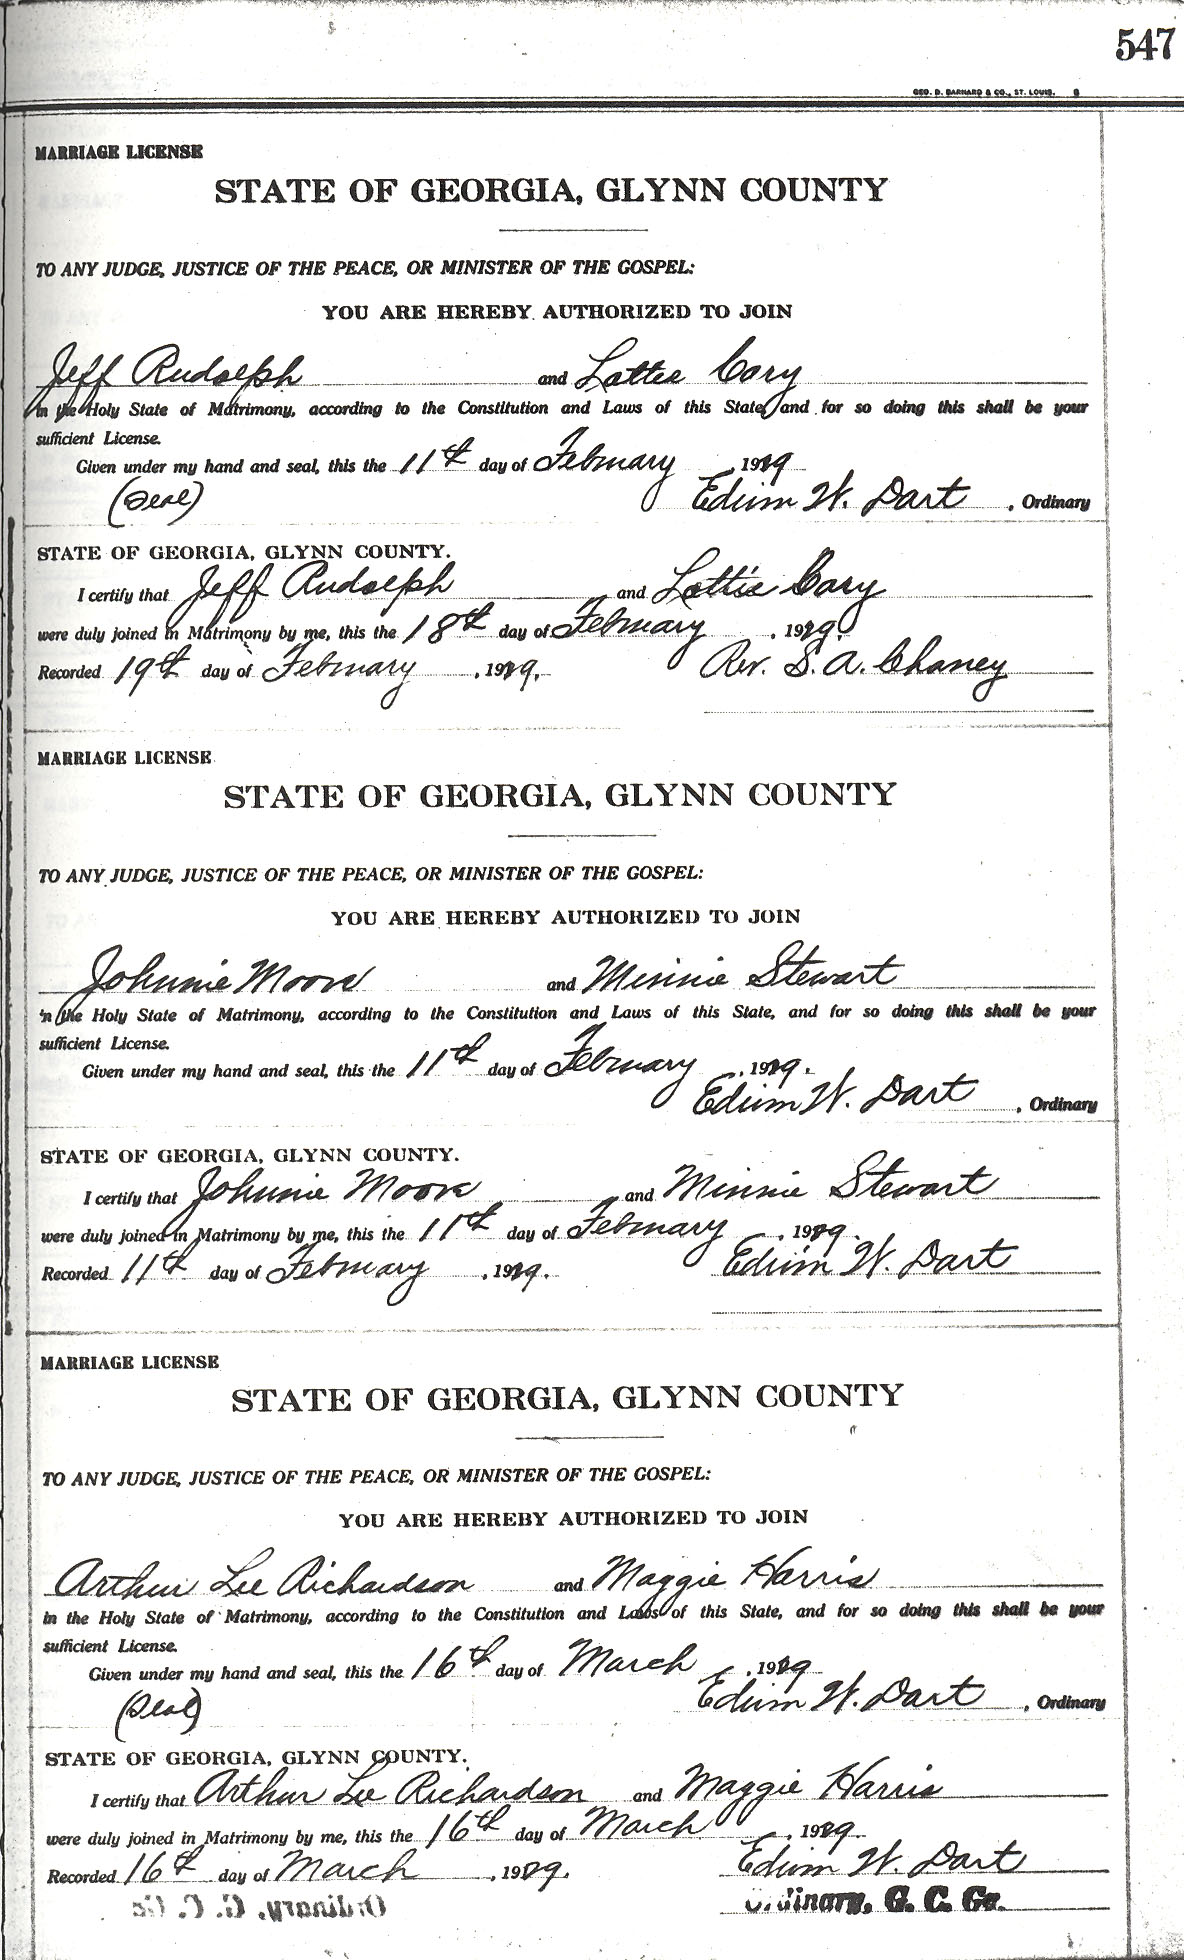 547
GEO. D. BARNARD & CO., ST. LOUIS. 8
MARRIAGE LICENSE
STATE OF GEORGIA, GLYNN COUNTY
TO ANY JUDGE, JUSTICE OF THE PEACE, OR MINISTER OF THE GOSPEL:
YOU ARE HEREBY AUTHORIZED TO JOIN
Jeff Rudolph and Lottie Cary
in the Holy State of Matrimony, according to the Constitution and Laws of this State, and for so doing this shall be your
sufficient License.
Given under my hand and seal, this the 11th day of February, 1929
(Seal) Edwin W. Dart, Ordinary
STATE OF GEORGIA, GLYNN COUNTY.
I certify that Jeff Rudolph and Lottie Cary
were duly joined in Matrimony by me, this the 18th day of February, 1929.
Recorded 19th day of February, 1929. Rev. S. A. Chaney
MARRIAGE LICENSE
STATE OF GEORGIA, GLYNN COUNTY
TO ANY JUDGE, JUSTICE OF THE PEACE, OR MINISTER OF THE GOSPEL:
YOU ARE HEREBY AUTHORIZED TO JOIN
Johnnie Moore and Minnie Stewart
in the Holy State of Matrimony, according to the Constitution and Laws of this State, and for so doing this shall be your
sufficient License.
Given under my hand and seal, this the 11th day of February, 1929.
Edwin W. Dart, Ordinary
STATE OF GEORGIA, GLYNN COUNTY.
I certify that Johnnie Moore and Minnie Stewart
were duly joined in Matrimony by me, this the 11th day of February, 1929.
Recorded 11th day of February, 1929. Edwin W. Dart
MARRIAGE LICENSE
STATE OF GEORGIA, GLYNN COUNTY
TO ANY JUDGE, JUSTICE OF THE PEACE, OR MINISTER OF THE GOSPEL:
YOU ARE HEREBY AUTHORIZED TO JOIN
Arthur Lee Richardson and Maggie Harris
in the Holy State of Matrimony, according to the Constitution and Laws of this State, and for so doing this shall be your
sufficient License.
Given under my hand and seal, this the 16th day of March, 1929
(Seal) Edwin W. Dart, Ordinary
STATE OF GEORGIA, GLYNN COUNTY.
I certify that Arthur Lee Richardson and Maggie Harris
were duly joined in Matrimony by me, this the 16th day of March, 1929.
Recorded 16th day of March, 1929. Edwin W. Dart
Ordinary, G. C. Ga.